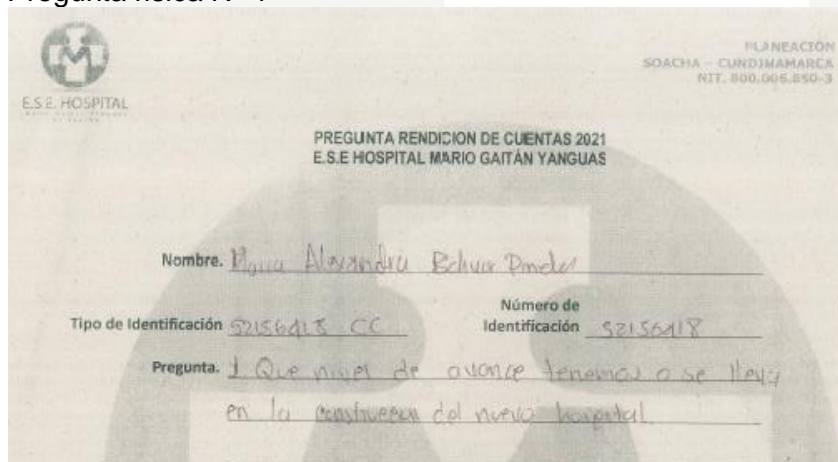 E.S.E. HOSPITAL
PLANEACIÓN
SOACHA - CUNDINAMARCA
NIT. 800.006.850-3
PREGUNTA RENDICION DE CUENTAS 2021
E.S.E HOSPITAL MARIO GAITÁN YANGUAS
Nombre. Maria Alexandra
Tipo de Identificación CC
Número de
Identificación 52156418
Pregunta. 1 Que nivel de avance tenemos o se lleva
en la construccion del nuevo hospital.